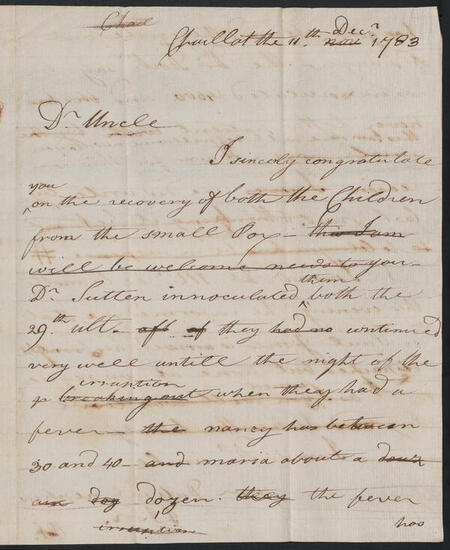 Chaillot the 11.th Decr. 1783
Dr. Uncle
I sincerly congratulate
you
on the recovery of both the Children
from the small Pox — this I am
will be welcome news to you
them
Dr. Sutten innoculated both the
29.th ult. they had no continued
very well untill the night of the
irruption
breaking out when they had a
fever — the nancy has between
30 and 40 — and maria about a
dozen. they the fever
irruption
has